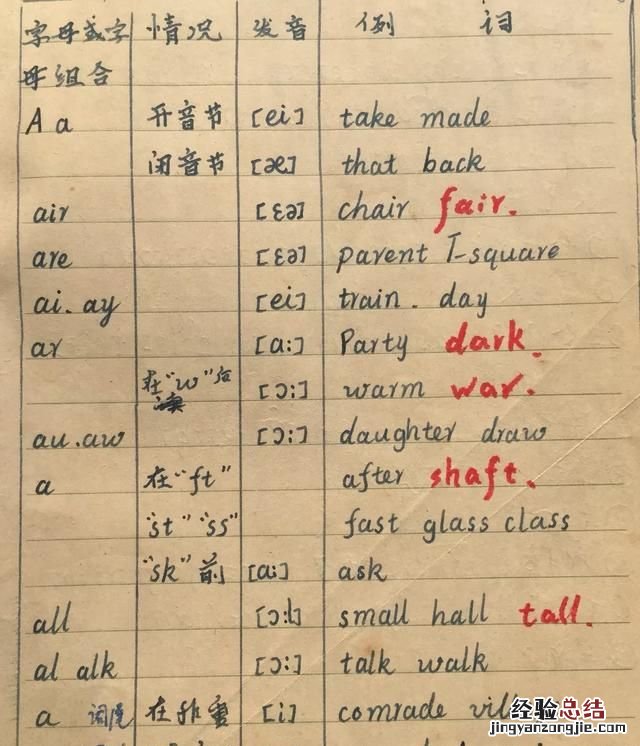 字母或字 情况 发音 例 词
母组合
A a 开音节 [ei] take made
闭音节 [æ] that back
air [ɛə] chair fair.
are [ɛə] parent T-square
ai. ay [ei] train. day
ar [a:] Party dark.
在"w"后 [ɔ:] warm war.
au. aw [ɔ:] daughter draw
a 在"ft" after shaft.
"st" "ss" fast glass class
"sk" 前 [a:] ask
all [ɔ:l] small hall tall.
al alk [ɔ:] talk walk
a 词尾 在非重 [i] comrade
经验总结
jingyanzongjie.com